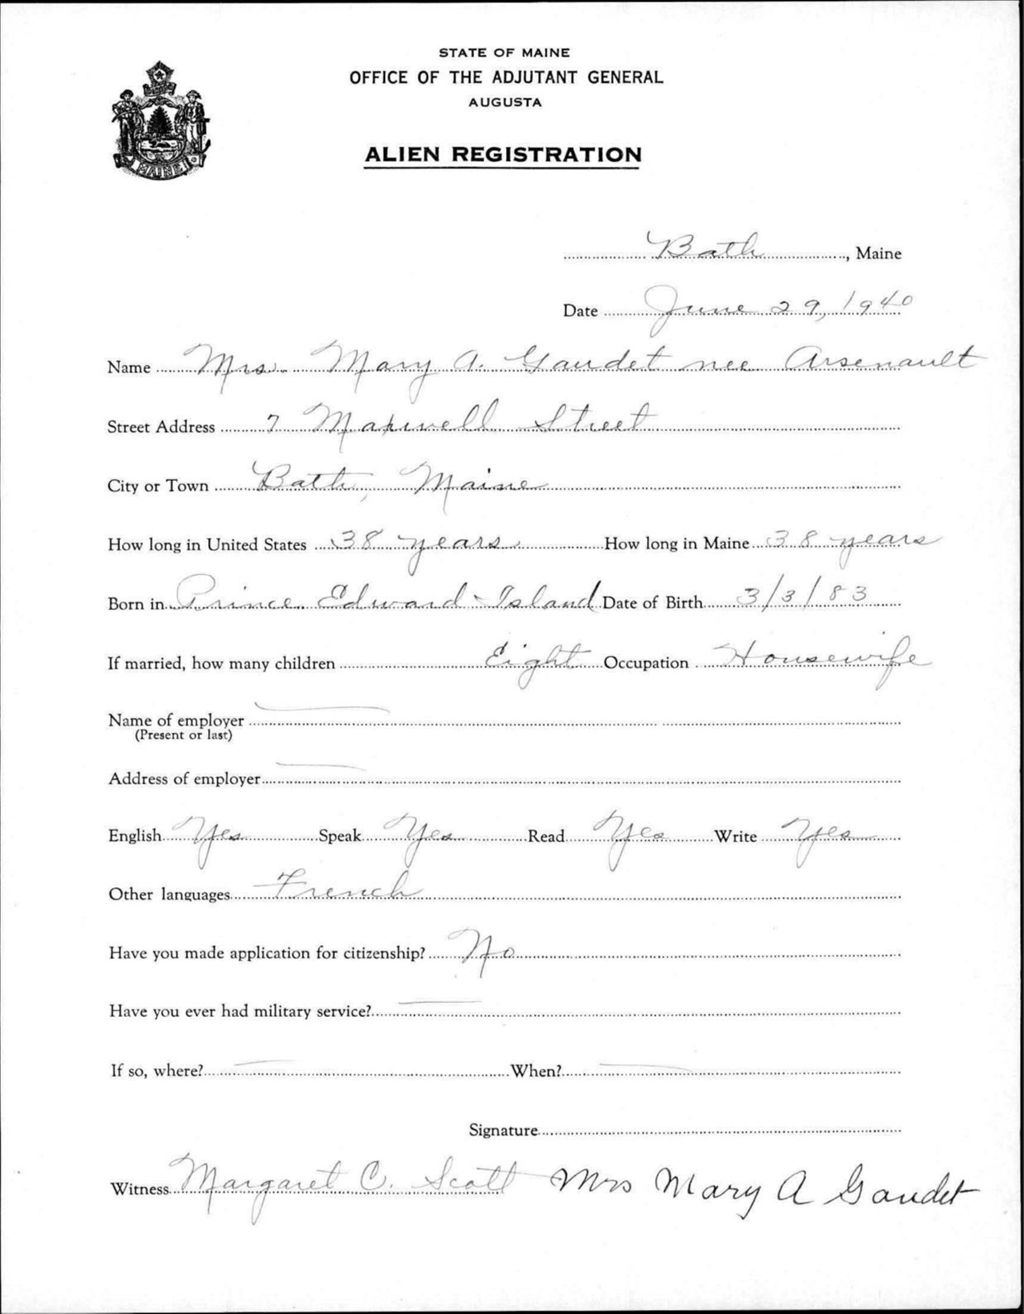 STATE OF MAINE
OFFICE OF THE ADJUTANT GENERAL
AUGUSTA
MAINE
ALIEN REGISTRATION
Bath, Maine
Date June 29, 1940
Name Mrs. Mary A. Gaudet nee Arsenault
Street Address 7 Maxwell Street
City or Town Bath, Maine
How long in United States 38 years How long in Maine 38 years
Born in Prince Edward Island Date of Birth 3/3/83
If married, how many children Eight Occupation Housewife
Name of employer
(Present or last)
Address of employer
English Yes Speak Yes Read Yes Write Yes
Other languages French
Have you made application for citizenship? No
Have you ever had military service?
If so, where? When?
Signature
Witness Margaret C. Scott Mrs Mary A Gaudet